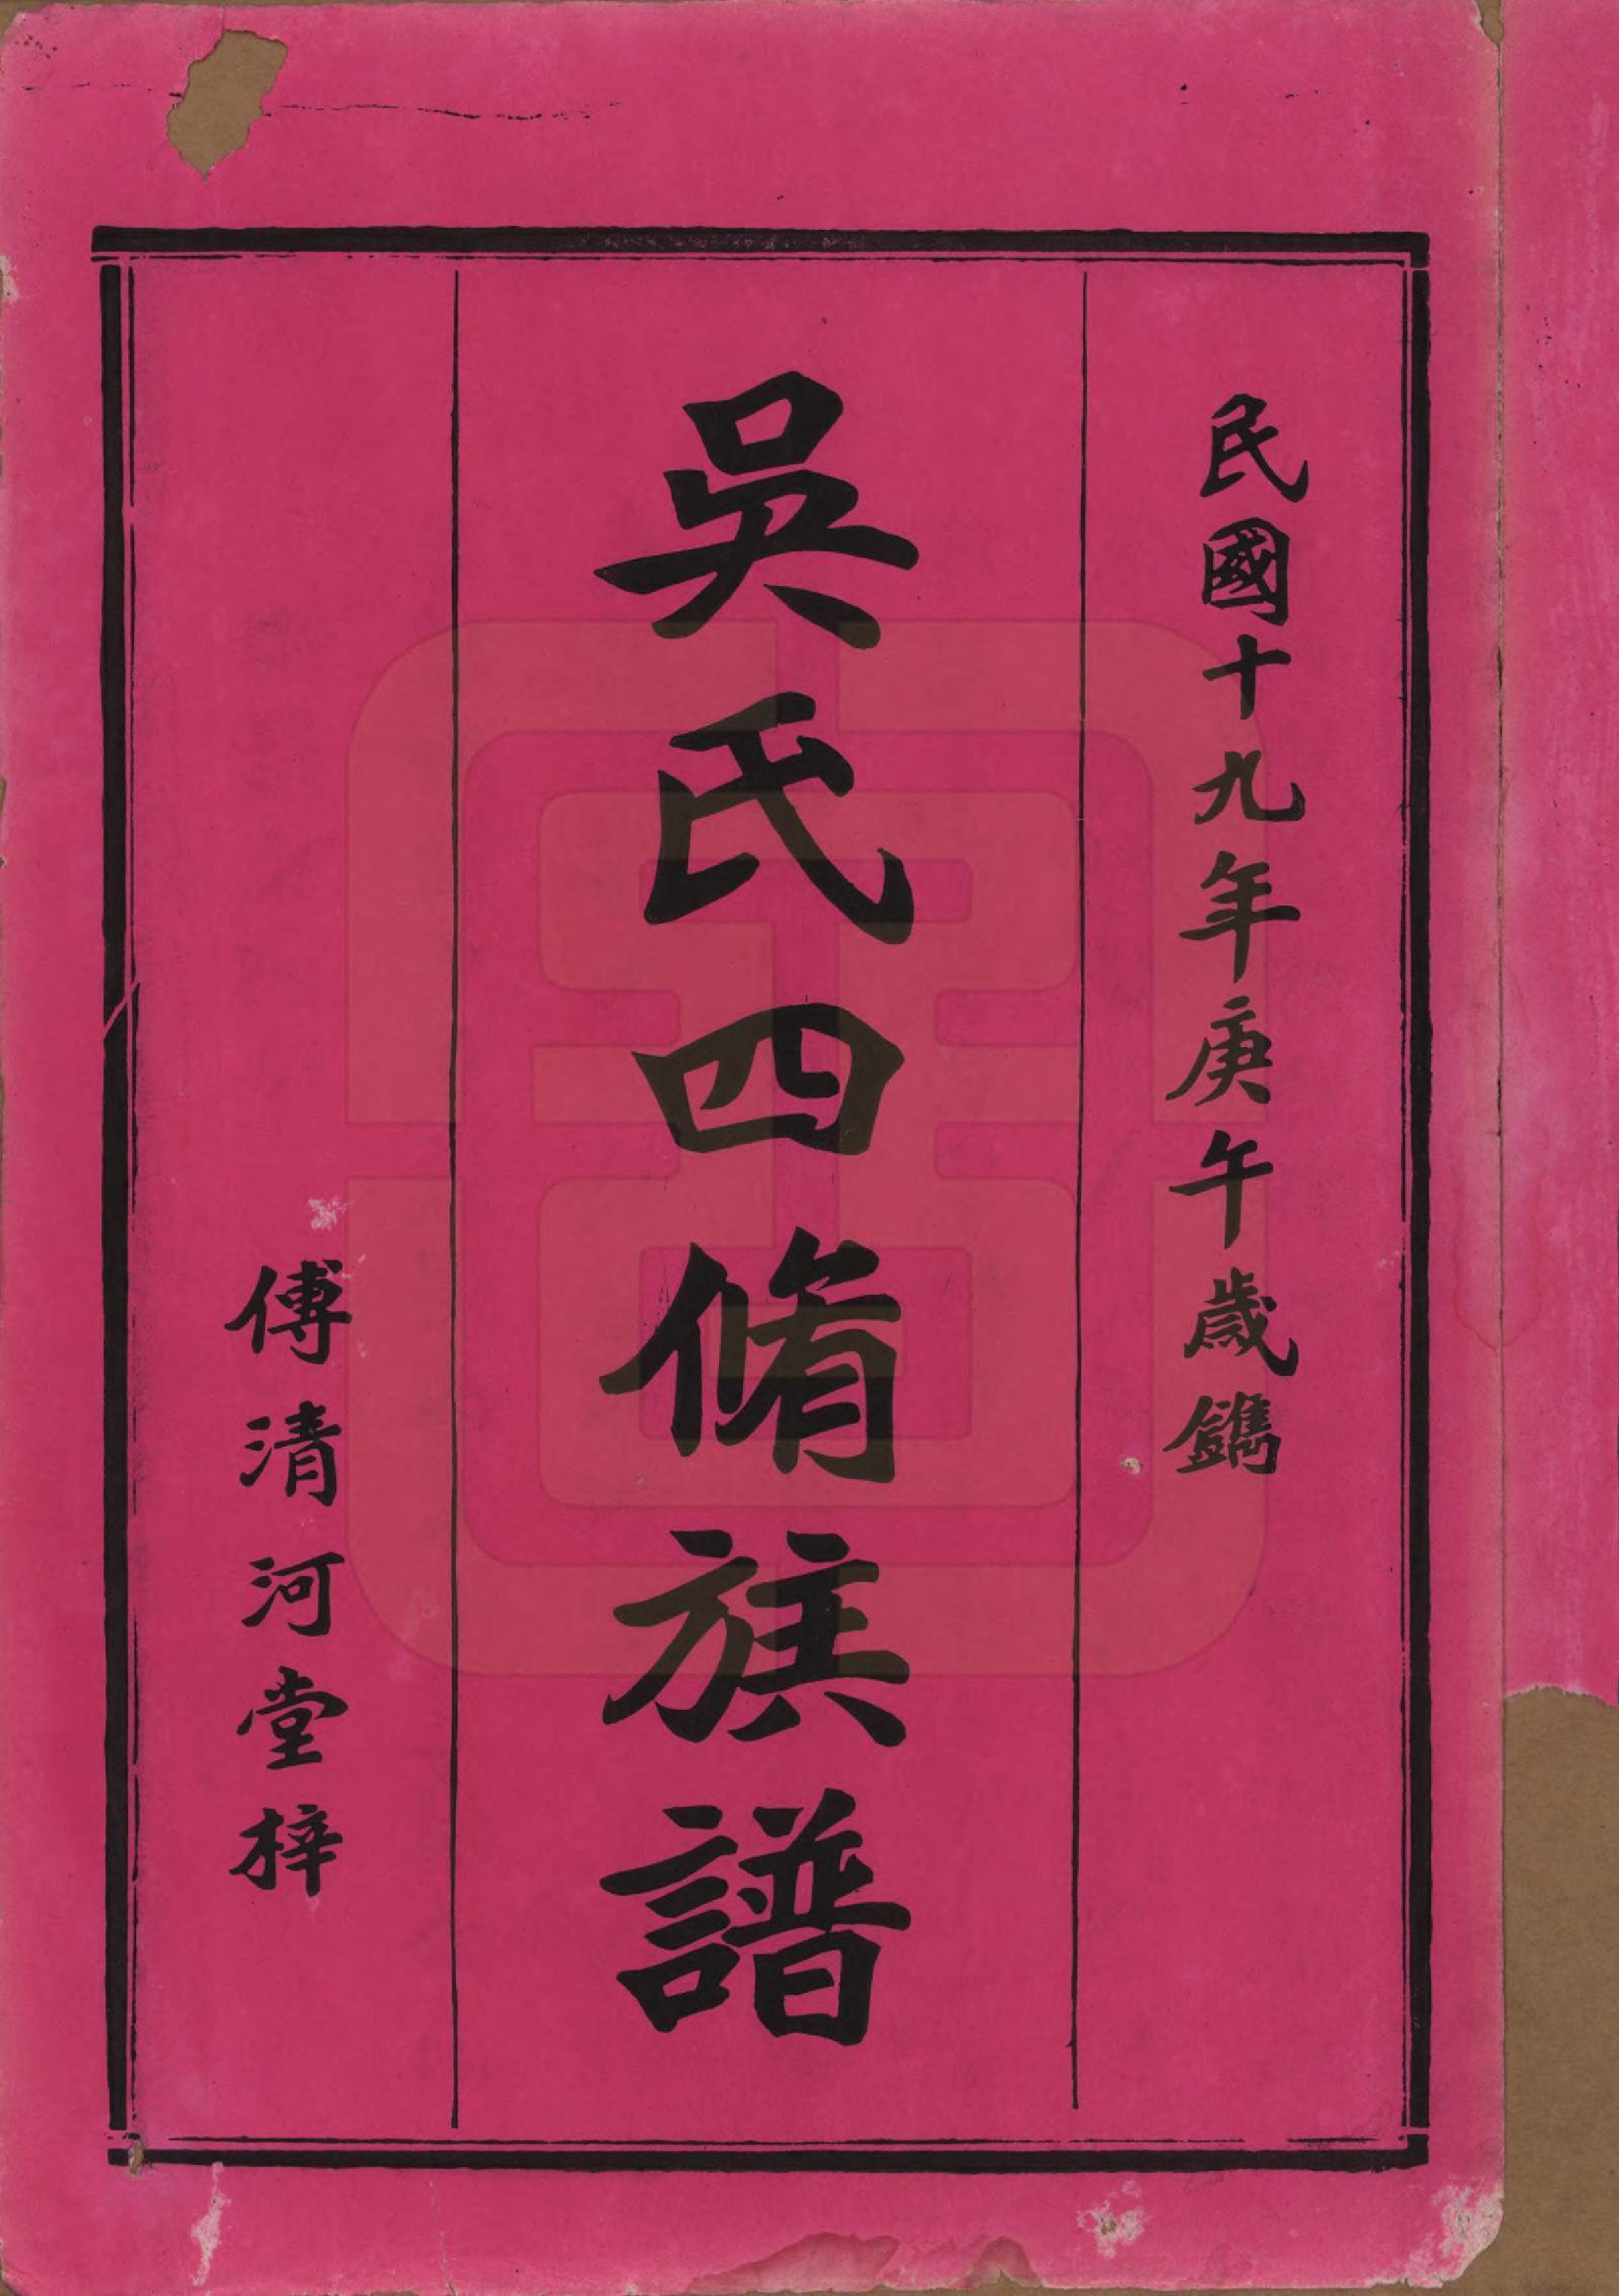 民國十九年庚午歲鐫
吳氏四脩族譜
傅清河堂梓